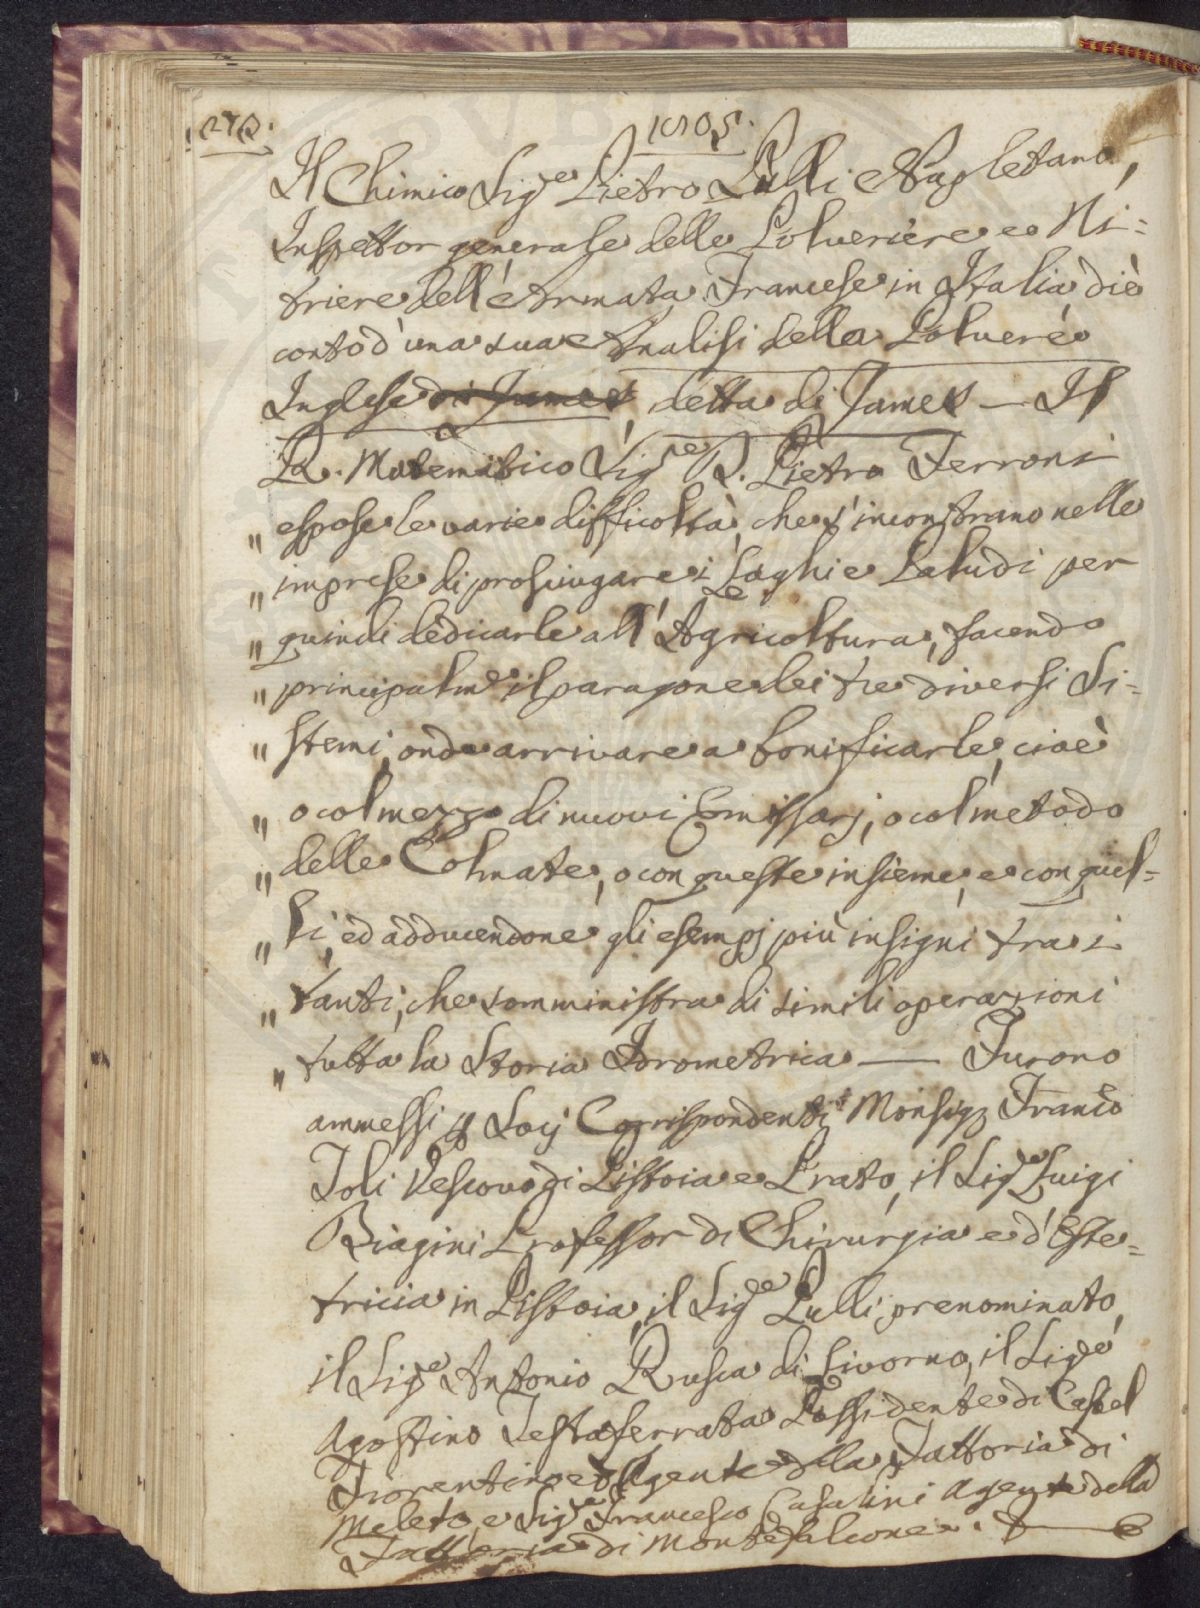 272.
1805.
Il Chimico Sig.e Pietro Pulli Napoletano,
Inspettor generale delle Polveriere e Ni=
triere dell'Armata Francese in Italia diè
conto d'una sua Analisi della Polvere
Inglese di James, detta di James — Il
R. Matematico Sig.re D. Pietro Ferroni
" espose le varie difficoltà, che s'incontrano nelle
" imprese di prosciugare i Laghi e Paludi per
" quindi dedicarle all'Agricoltura, facendo
" principalm.e il paragone dei tre diversi Si=
" stemi, onde arrivare a bonificarle, cioè
" o col mezzo di nuovi Emissarj, o col metodo
" delle Colmate, o con queste insieme, e con quel=
" li, ed adducendone gli esempj più insigni tra i
" tanti, che somministra di simili operazioni
" tutta la Storia Idrometrica — Furono
ammessi p Socj Corrispondenti Monsig. Franc.o
Toli Vescovo di Pistoia e Prato, il Sig.e Luigi
Biagini Professor di Chirurgia e d'Oste=
tricia in Pistoia, il Sig.e Pulli prenominato,
il Sig.e Antonio Rusca di Livorno, il Sig.e
Agostino Testaferrata Possidente di Castel
Fiorentino ed Agente della Fattoria di
Meleto, e Sig.e Francesco Casalini Agente della
Fattoria di Montefalcone.